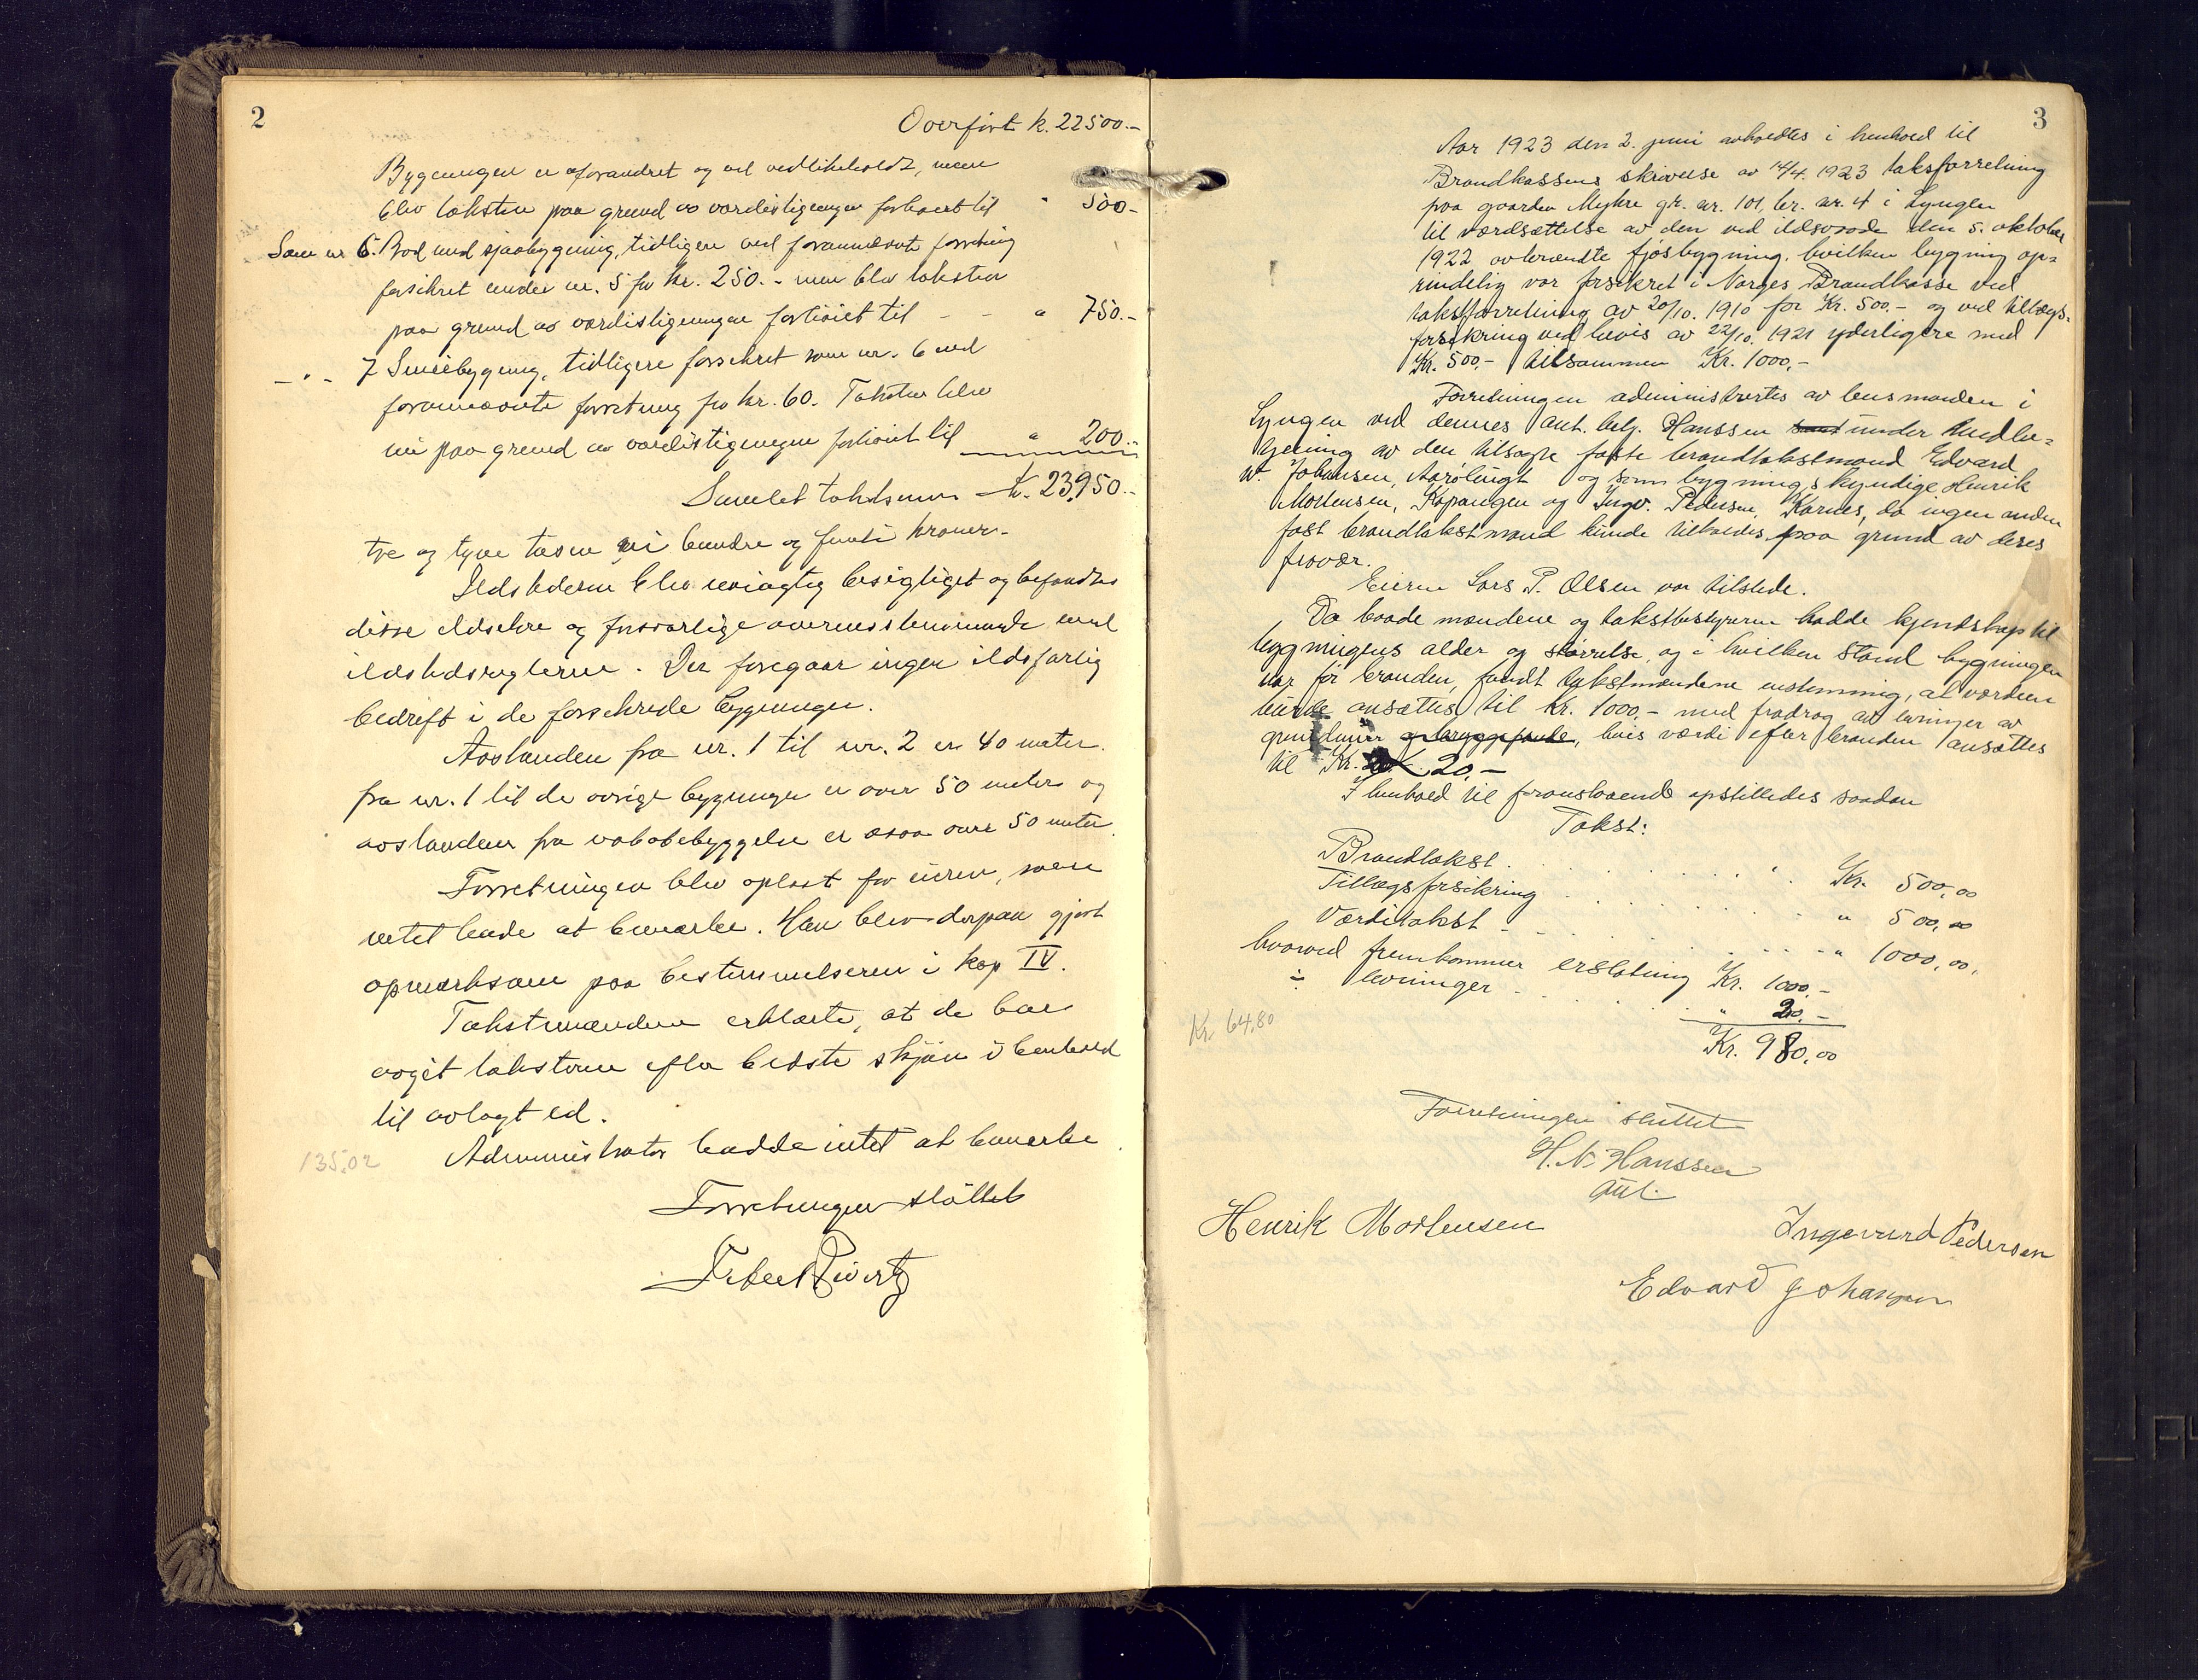 2
Overført k. 22500.-
Bygningen er uforandret og vel vedlikeholdt, men
blev taksten paa grund av værdistigningen forhøiet til " 500-
Som nr 6. Bod med sjaabygning, tidligere ved forannævnte forretning
forsikret under nr. 5 for kr. 250.- men blev taksten
paa grund av værdistigningen forhøiet til - - " 750.-
-"- 7 Smiebygning, tidligere forsikret som nr. 6 ved
forannævnte forretning for kr. 60. Taksten blev
nu paa grund av værdistigningen forhøiet til " 200.-
Samlet takstsum kr. 23,950.-
tre og tyve tusen ni hundre og femti kroner.-
Ildstederne blev nøiagtig besigtiget og befandtes
disse ildsikre og forsvarlige overensstemmende med
ildstedsreglerne. Der foregaar ingen ildsfarlig
bedrift i de forsikrede bygninger.
Avstanden fra nr. 1 til nr. 2 er 40 meter.
fra nr. 1 til de øvrige bygninger er over 50 meter og
avstanden fra nabobebyggelse er ogsaa over 50 meter.
Forretningen blev oplæst for eieren, som
intet hadde at bemerke. Han blev derpaa gjort
opmerksom paa bestemmelserne i kap IV.
Takstmændene erklærte, at de har
avgit taksterne efter bedste skjøn i henhold
til avlagt ed.
135,02 Administrator hadde intet at bemerke
Forretningen sluttet
3
Aar 1923 den 2. juni avholdtes i henhold til
Brandkassens skrivelse av 14/4. 1923 takstforretning
paa gaarden Myhre gr. nr. 101, br. nr. 4 i Lyngen
til værdsættelse av den ved ildsvaade den 5. oktober
1922 avbrændte fjøsbygning, hvilken bygning op=
rindelig var forsikret i Norges Brandkasse ved
takstforretning av 20/10. 1910 for Kr. 500,- og ved tillægs=
forsikring ved bevis av 22/10. 1921 yderligere med
Kr. 500,- tilsammen Kr. 1000,-
Forretningen administrertes av lensmanden i
Lyngen ved dennes aut. betj. Hanssen under medbe=
tjening av den tilsagte faste brandtakstmand Edvard
W. Johansen, Aarøbugt og som bygningskyndige Henrik
Mortensen, Kopangen og Ingv. Pedersen, Karnes, da ingen anden
fast brandtakstmand kunde tilkaldes paa grund av deres
fravær.
Eieren Lars P. Olsen var tilstede.
Da baade mændene og takstbestyreren hadde kjendskap til
bygningens alder og størrelse, og i hvilken stand bygningen
var før branden, fandt takstmændene enstemmig, at værdien
burde ansættes til kr. 1000,- med fradrag av levninger av
grundmur og bryggepande, hvis værdi efter branden ansættes
til Kr. 20,-
I henhold til foranstaaende opstilledes saadan
Takst:
Brandtakst . . . . . . Kr. 500,00
Tillægsforsikring . . . . . " 500,00
Værditakst . . . . . . " 1000,00,
hvorved fremkommer erstatning Kr. 1000,-
÷ levninger - . . . " 20,-
Kr. 64,80
Kr. 980,00
Forretningen sluttet
H. N. Hanssen
aut.
Henrik Mortensen
Ingevard Pedersen
Edvard Johansen